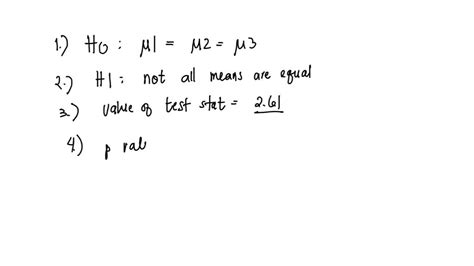 1.) H0 : μ1 = μ2 = μ3
2.) H1 : not all means are equal
3.) value of test stat = 2.61
4) p val